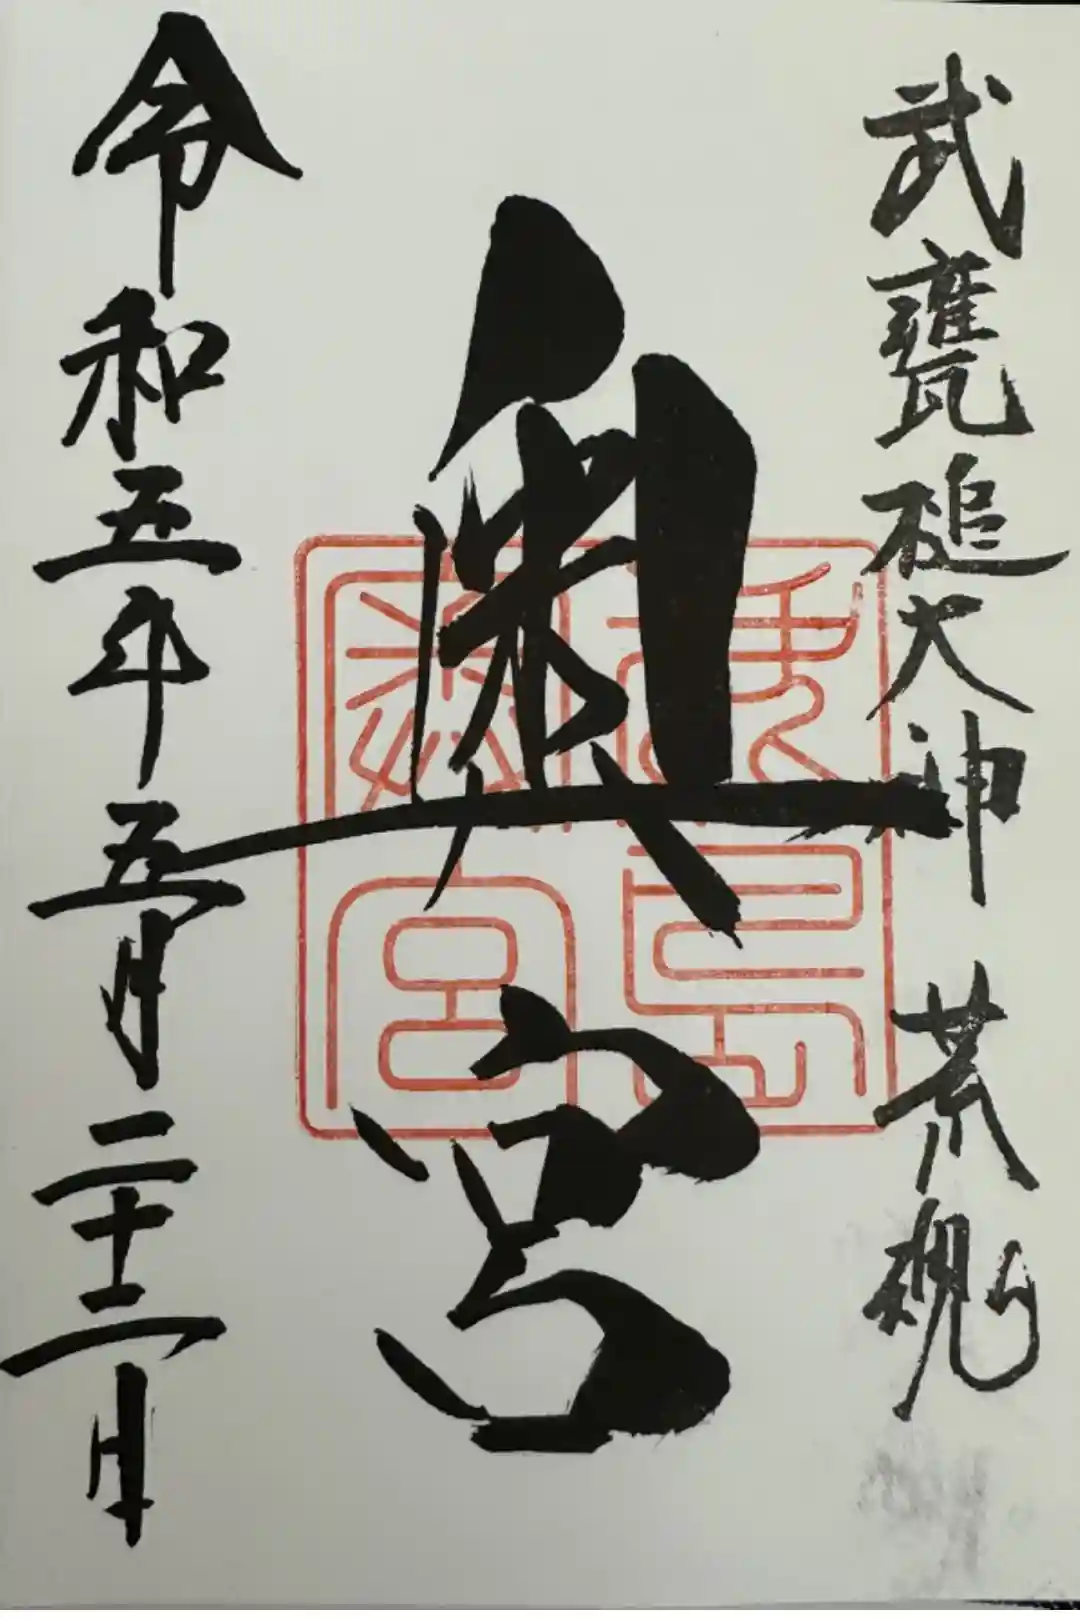 武甕槌大神 荒魂
奥宮
鹿島
奥宮
令和五年五月二十二日